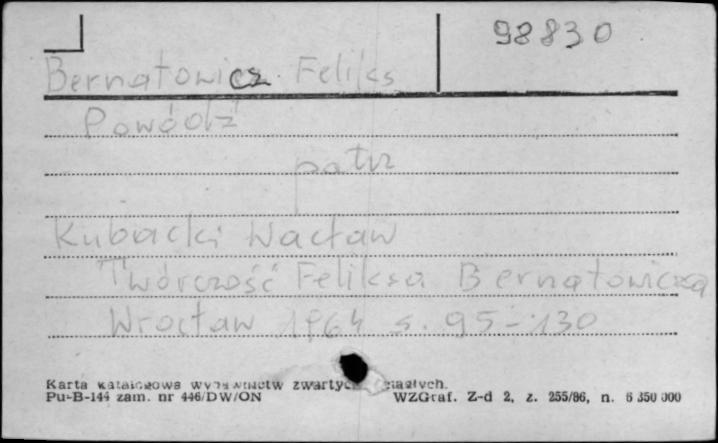 98830
Bernatowicz Feliks
Powódź
patrz
Kubacki Wacław
Twórczość Feliksa Bernatowicza
Wrocław 1964 s. 95-130
Karta katalogowa wydawnictw zwartych ciągłych.
Pu-B-144 zam. nr 446/DW/ON WZGraf. Z-d 2, z. 255/86, n. 6 350 000